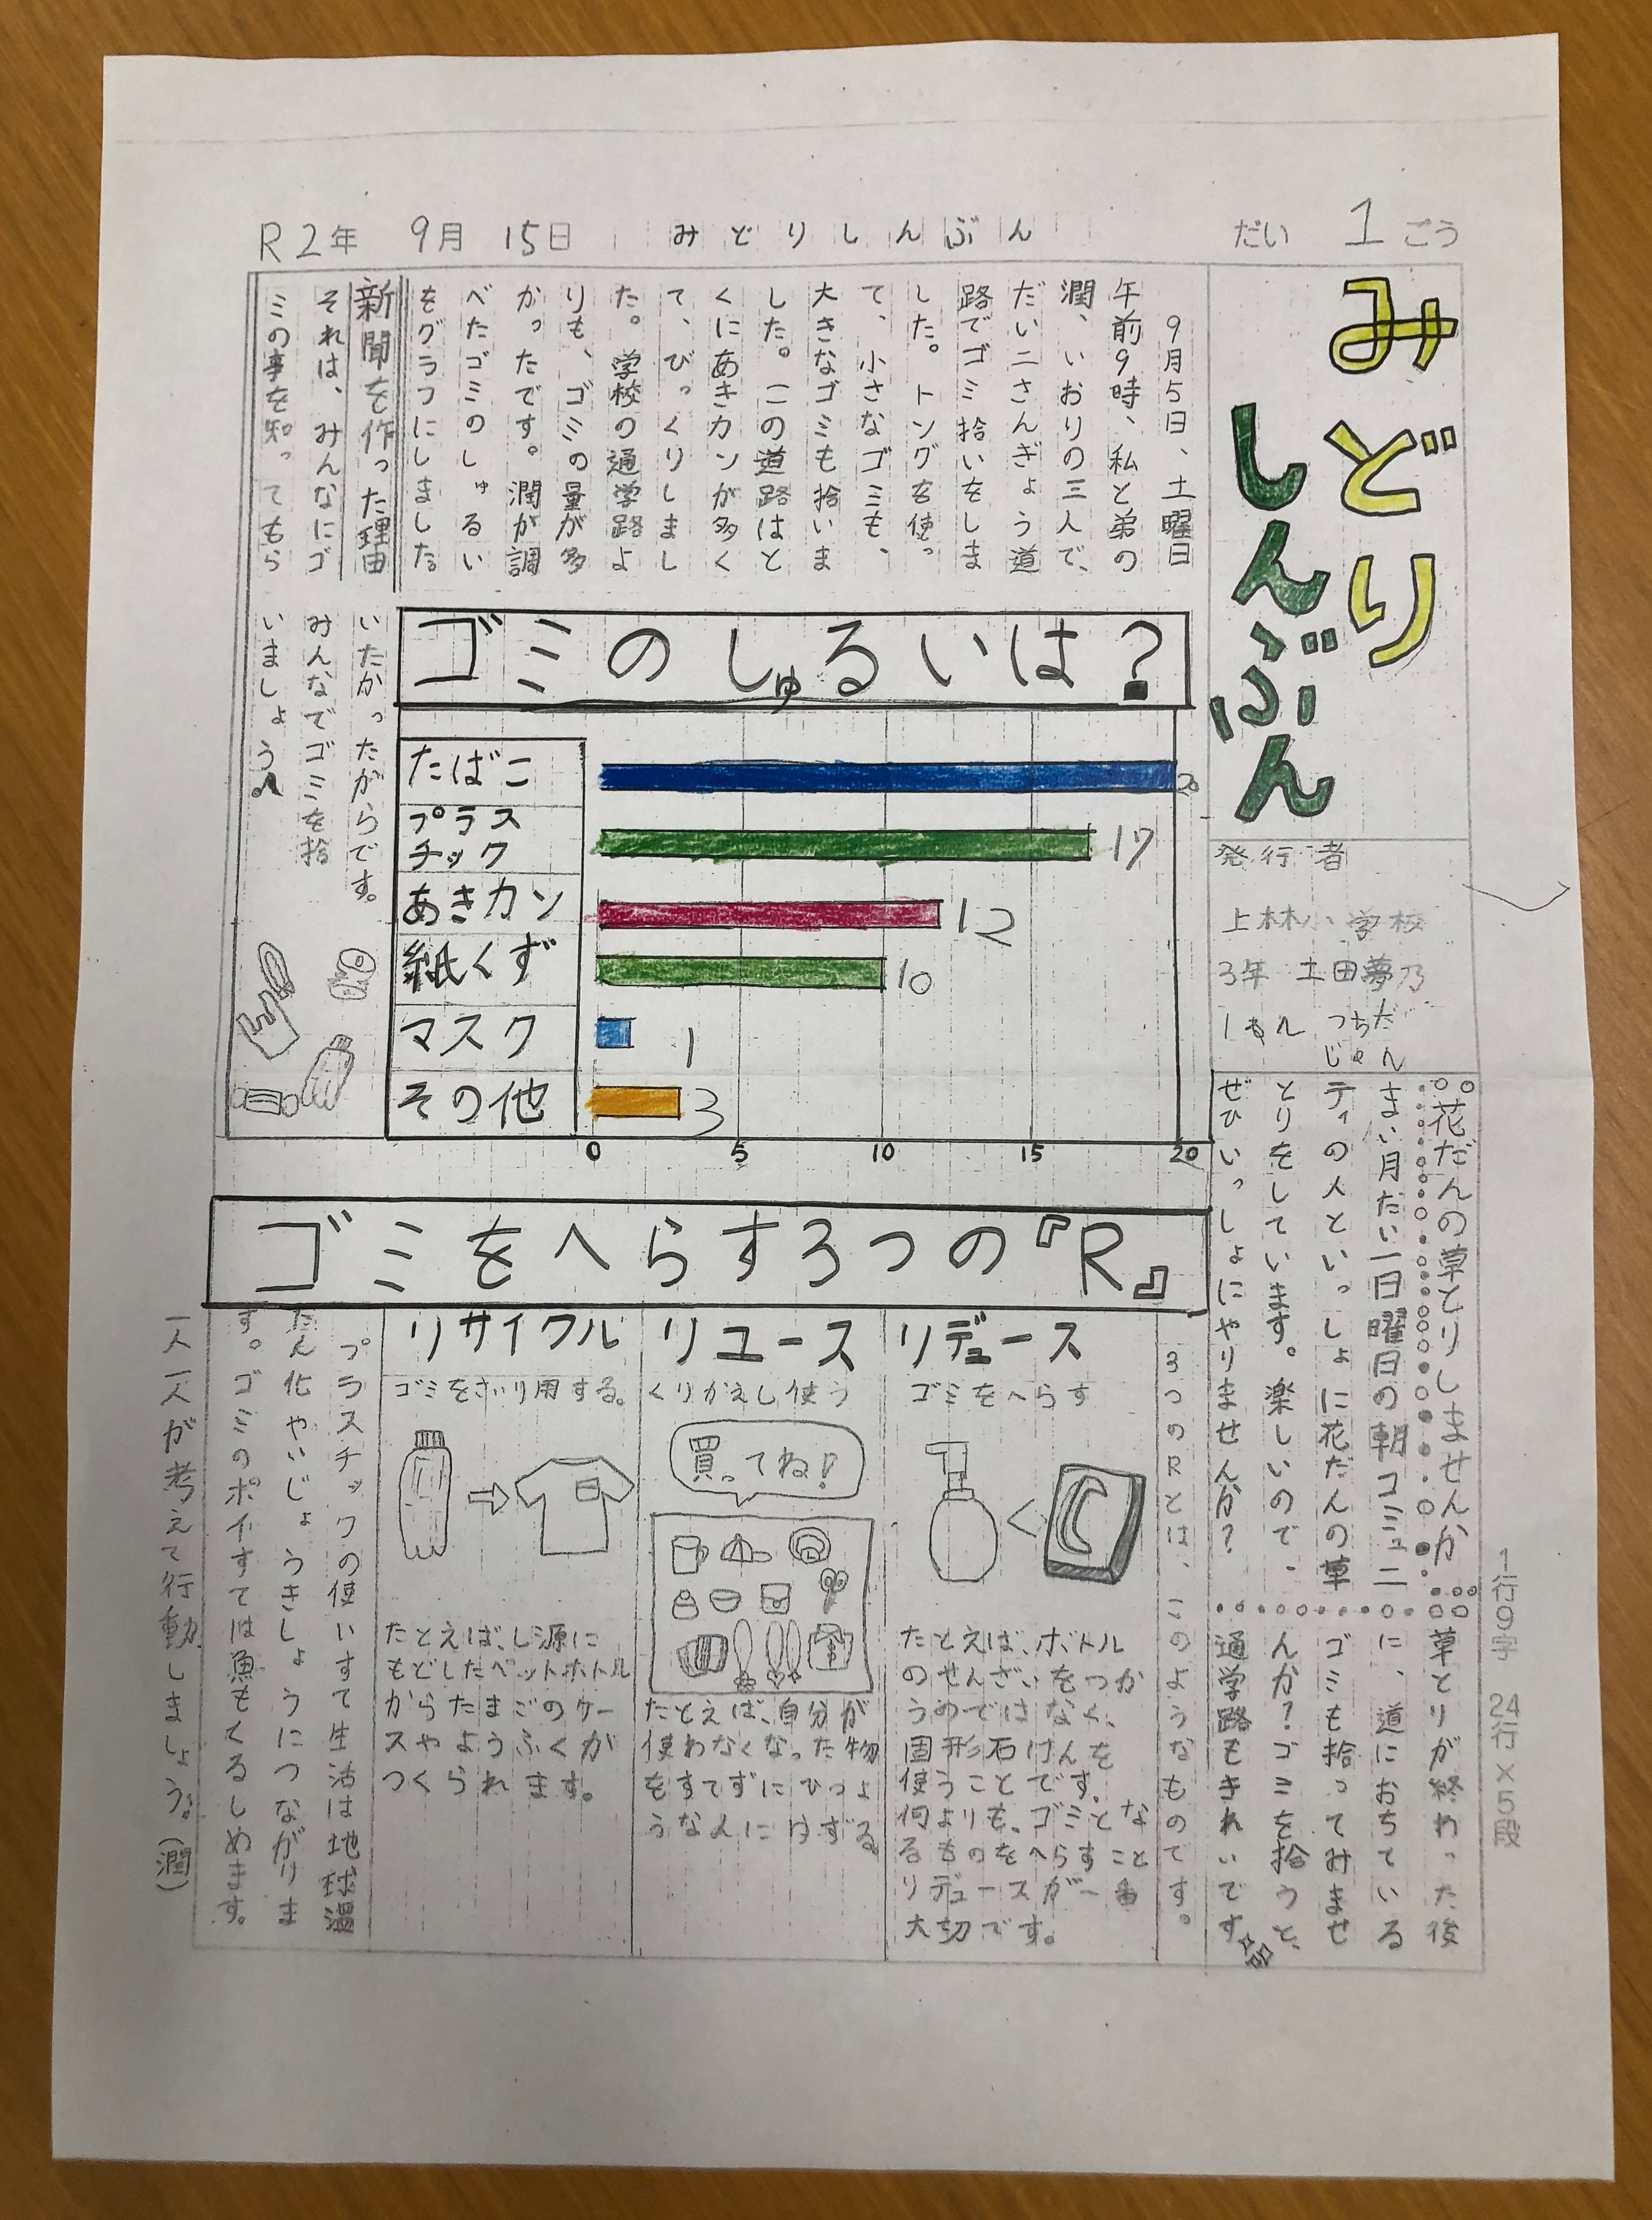 R2年 9月 15日 みどりしんぶん だい 1 ごう
みどり
しんぶん
発行者
上林小学校
3年 土田夢乃
1ねん つちだ
じゅん
9月5日、土曜日
午前9時、私と弟の
潤、いおりの三人で、
だい二さんぎょう道
路でゴミ拾いをしま
した。トングを使っ
て、小さなゴミも、
大きなゴミも拾いま
した。この道路はと
くにあきカンが多く
て、びっくりしまし
た。学校の通学路よ
りも、ゴミの量が多
かったです。潤が調
べたゴミのしゅるい
をグラフにしました。
新聞を作った理由
それは、みんなにゴ
ミの事を知ってもら
いたかったがらです。
みんなでゴミを拾
いましょう。
ゴミのしゅるいは?
たばこ 20
プラス
チック 17
あきカン 12
紙くず 10
マスク 1
その他 3
0 5 10 15 20
花だんの草とりしませんか
まい月だい一日曜日の朝コミュニ
ティの人といっしょに花だんの草
とりをしています。楽しいので、
ぜひいっしょにやりませんか?
草とりが終わった後
に、道におちている
ゴミも拾ってみませ
んか?ゴミを拾うと、
通学路もきれいです
ゴミをへらす3つの『R』
3つのRとは、このようなものです。
リデュース
ゴミをへらす
たとえば、ボトル
のせんざいをつか
うのではなく、
固形石けんを
使うことです。
何よりも、ゴミとな
るものをへらすこと
リデュースが一番
大切です。
リユース
くりかえし使う
買ってね!
たとえば、自分が
使わなくなった物
をすてずにひつよ
うな人にゆずる
リサイクル
ゴミをさいり用する。
たとえば、し源に
もどしたペットボトル
からたまごのケー
スやようふくが
つくられます。
プラスチックの使いすて生活は地球温
だん化やいじょうきしょうにつながりま
す。ゴミのポイすては魚もくるしめます。
一人一人が考えて行動しましょう。(潤)
1行9字 24行×5段